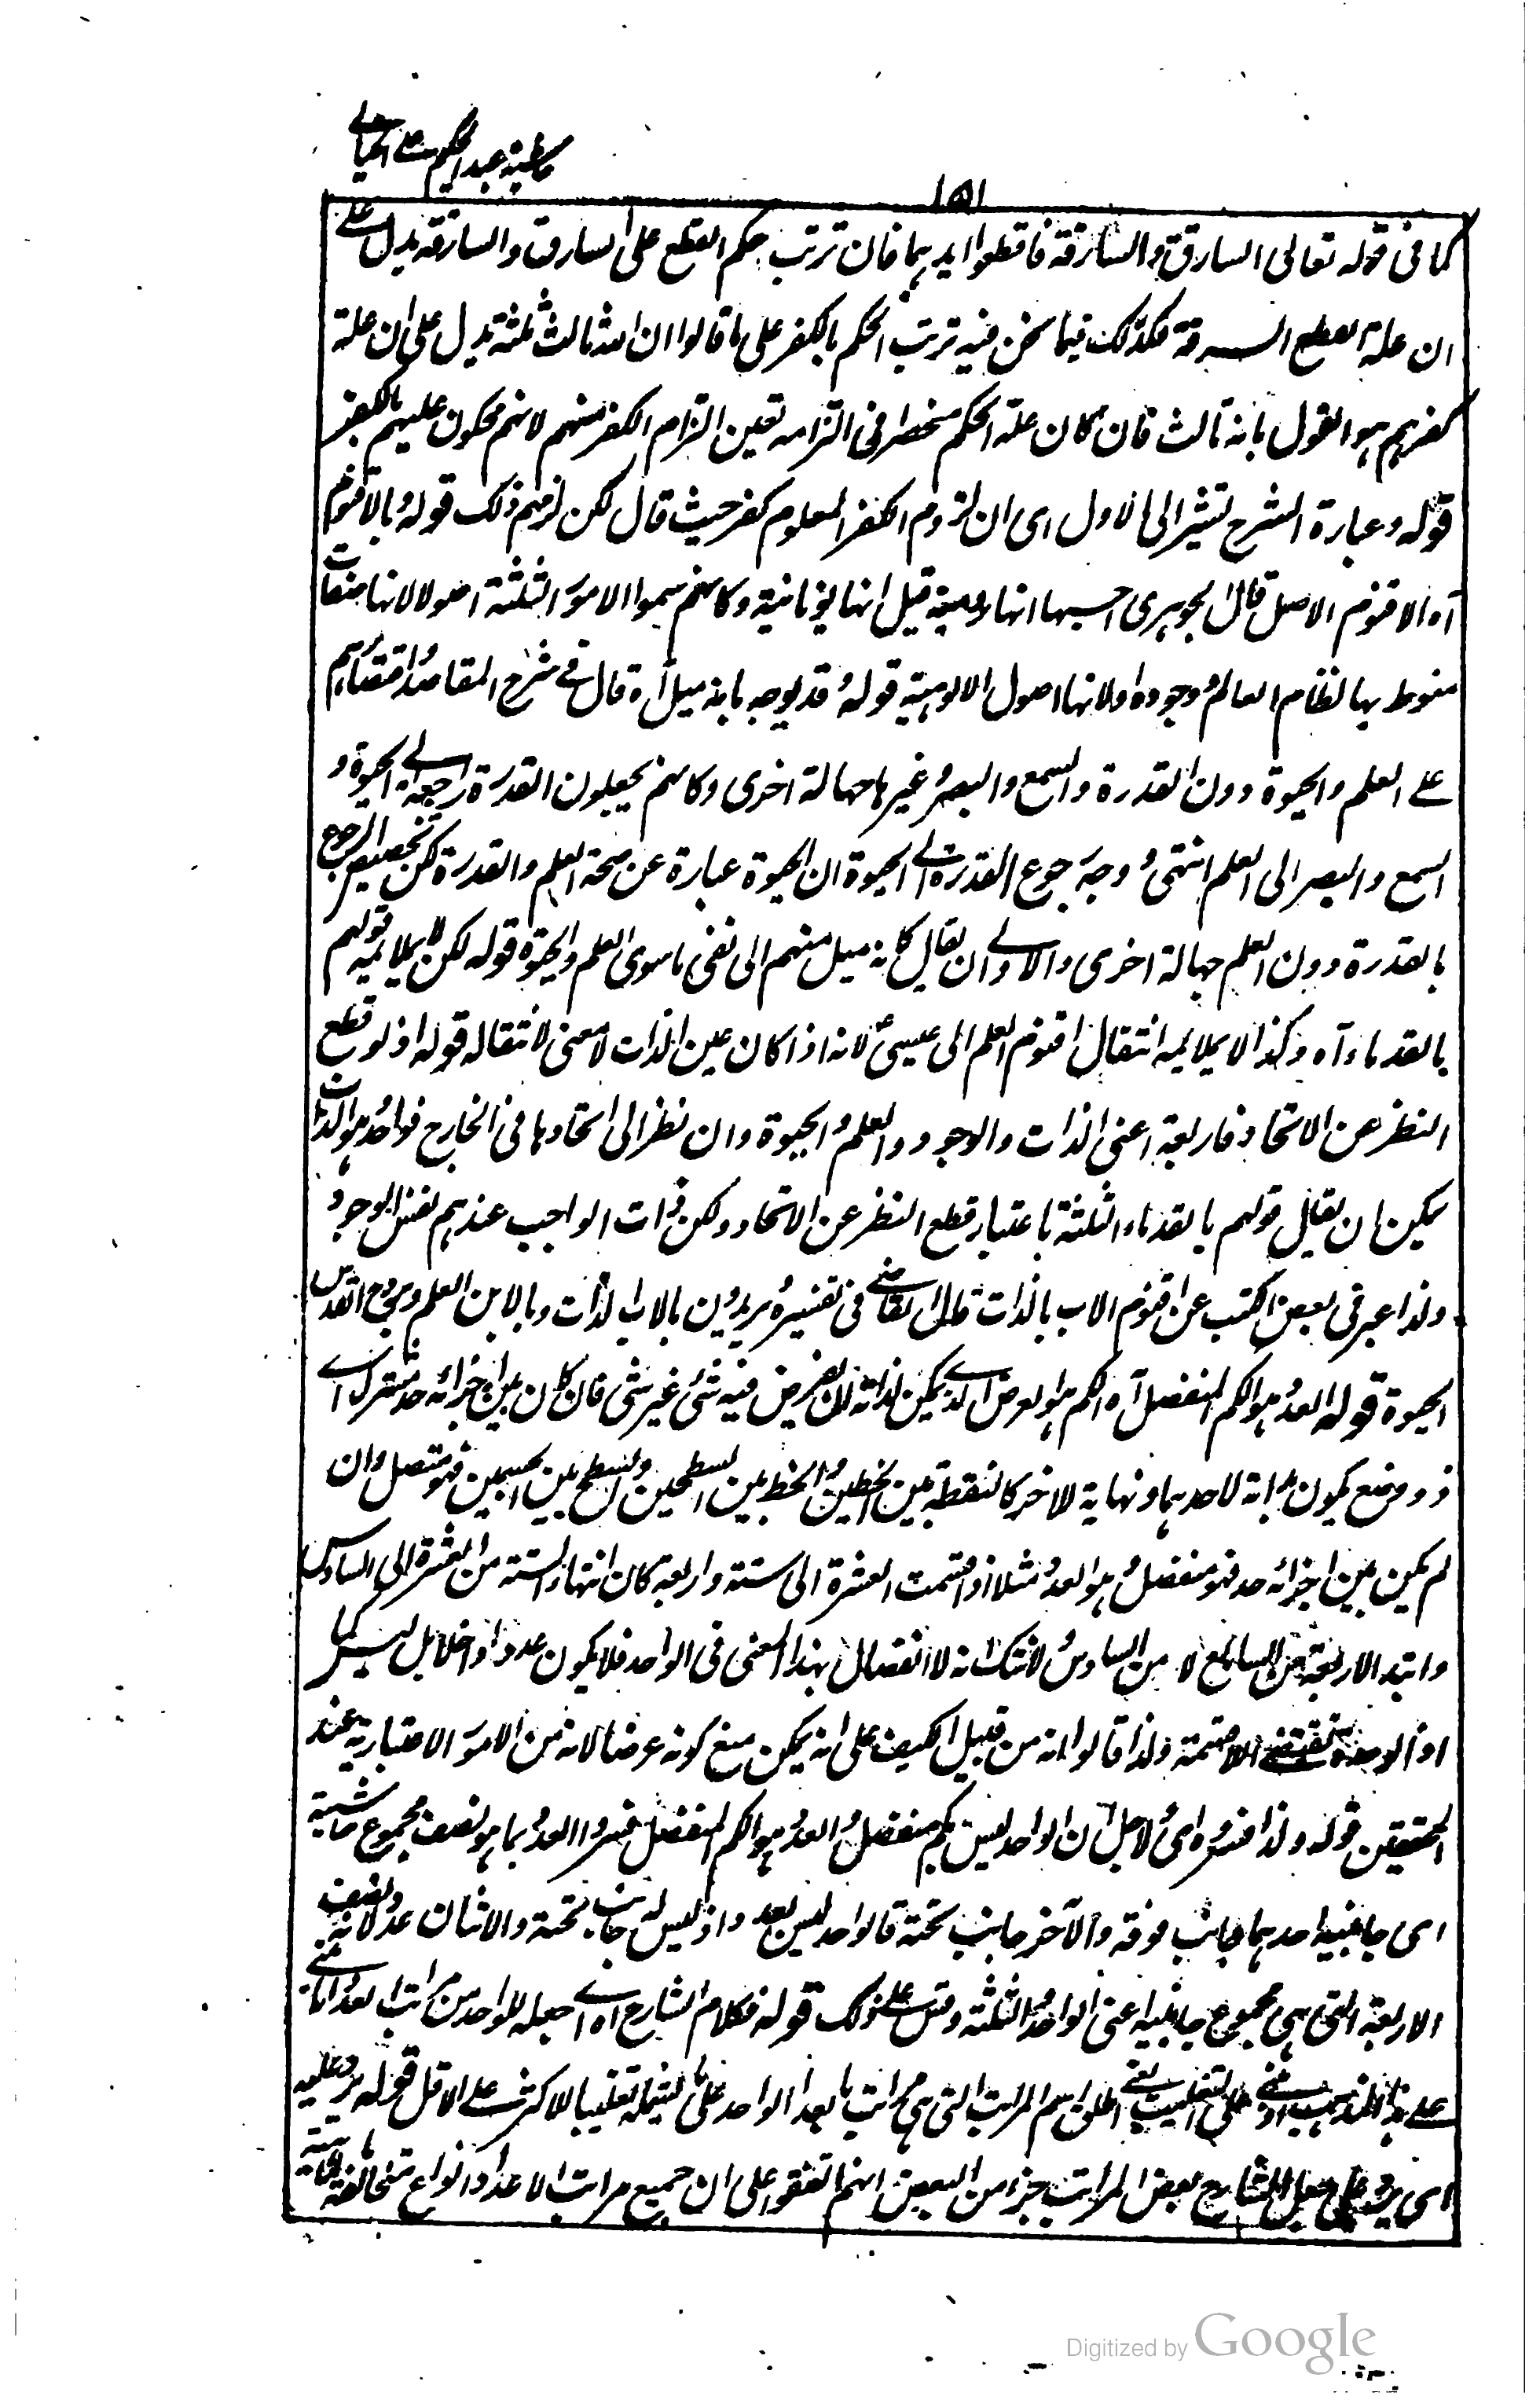 حاشية عبد الحكيم على الخيالي
١٥١
كما فى قوله تعالى السارق والسارقة فاقطعوا ايديهما فان ترتب حكم القطع على السارق والسارقة يدل على
ان علة القطع السرقة فكذلك فيما نحن فيه ترتب الحكم بالكفر على ما قالوا ان الله ثالث ثلثة يدل على ان علة
كفرهم هو القول بانه ثالث فان كان علة الحكم منحصرا فى التزامه تعين التزام الكفر منهم لانهم محكون عليهم بالكفر
قوله وعبارة الشرح تشير الى الاول اى ان لزوم الكفر المعلوم كفر حيث قال لكن لزمهم ذلك قوله بالاقنوم
آه الاقنوم الاصل قال الجوهرى احسبها انها رومية قيل انها يونانية وكانهم سموا الامور الثلثة اصولا لانها صفات
منوط بها نظام العالم ووجوده اولانها اصول الالوهية قوله قد يوجه بانه ميل آه قال فى شرح المقاصد اقتصارهم
على العلم والحيوة دون القدرة والسمع والبصر وغيرها جهالة اخرى وكانهم يجعلون القدرة راجعة الى الحيوة و
السمع والبصر الى العلم انتهى وجه رجوع القدرة الى الحيوة ان الحيوة عبارة عن صحة العلم والقدرة لكن تخصيص الرجوع
بالقدرة دون العلم جهالة اخرى والاولى ان يقال كانه ميل منهم الى نفى ما سوى العلم والحيوة قوله لكن لا يلايمه قولهم
بالقدماء آه وكذا لا يلايمه انتقال اقنوم العلم الى عيسى لانه اذا كان عين الذات لا معنى لانتقاله قوله اذ لو قطع
النظر عن الاتحاد فاربعة اعنى الذات والوجود والعلم والحيوة وان نظر الى اتحادها فى الخارج فواحد هو الذات
يمكن ان يقال قولهم بالقدماء الثلثة باعتبار قطع النظر عن الاتحاد ولكن ذات الواجب عندهم نفس الوجود
ولذا عبر فى بعض الكتب عن اقنوم الاب بالذات قال القاضى فى تفسيره يريدون بالاب الذات وبالابن العلم وبروح القدس
الحيوة قوله العدد هو الكم المنفصل آه الكم هو العرض الذى يمكن لذاته ان يفرض فيه شئ غير شئ فان كان بين اجزائه حد مشترك اى
ذو وضع يكون بداية لاحدهما ونهاية للاخر كالنقطة بين الخطين والخط بين السطحين والسطح بين الجسمين فهو متصل وان
لم يكن بين اجزائه حد فهو منفصل وهو العدد مثلا اذا قسمت العشرة الى ستة واربعة كان انتهاء الستة من العشرة الى السادس
وابتداء الاربعة من السابع لا من السادس ولا شك انه لا انفصال بهذا المعنى فى الواحد فلا يكون عددا داخلا بل ليس كما
اذ الوحدة تقتضى اللاقسمة ولذا قالوا انه من قبيل الكيف على انه يمكن منع كونه عرضا لانه من الامور الاعتبارية عند
المحققين قوله ولذا فسروه اى لاجل ان الواحد ليس بكم منفصل والعدد هو الكم المنفصل فسروا العدد بما هو نصف مجموع حاشيتيه
اى جانبيه احدهما جانب فوقه والآخر جانب تحته فالواحد ليس بعدد اذ ليس له جانب تحته والاثنان عدد لانه نصف
الاربعة التى هى مجموع جانبيه اعنى الواحد والثلثة وقس على ذلك قوله فكلام الشارح آه اى جعله للواحد من مراتب العدد اما مبنى
على هذا المذهب او مبنى على التغليب يعنى اطلق اسم المراتب التى هى مراتب ما بعد الواحد على ما يشمله تغليبا للاكثر على الاقل قوله يرد عليه
اى يرد على جعل الشارح بعض المراتب جزء من البعض انهم اتفقوا على ان جميع مراتب الاعداد انواع متخالفة
Digitized by Google